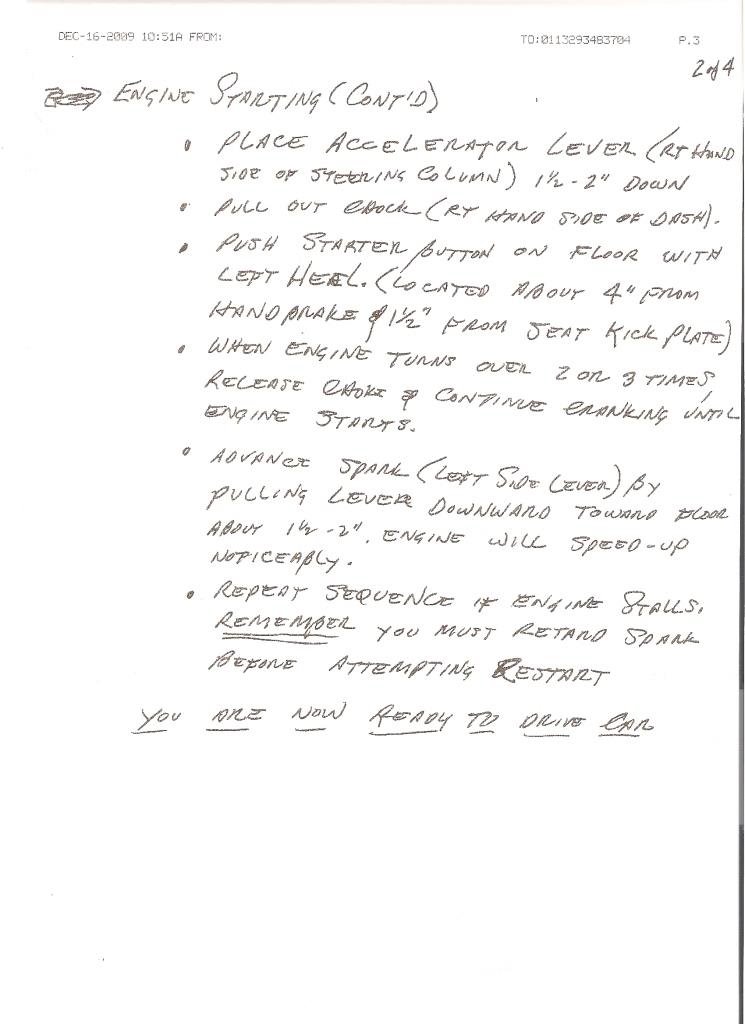 DEC-16-2009 10:51A FROM: TO:0113293483704 P.3
2 of 4
ENGINE STARTING (CONT'D)
• PLACE ACCELERATOR LEVER (RT HAND
SIDE OF STEERING COLUMN) 1½ - 2" DOWN
• PULL OUT CHOCK (RT HAND SIDE OF DASH).
• PUSH STARTER BUTTON ON FLOOR WITH
LEFT HEEL. (LOCATED ABOUT 4" FROM
HAND BRAKE & 1½" FROM SEAT KICK PLATE)
• WHEN ENGINE TURNS OVER 2 OR 3 TIMES,
RELEASE CHOKE & CONTINUE CRANKING UNTIL
ENGINE STARTS.
• ADVANCE SPARK (LEFT SIDE LEVER) BY
PULLING LEVER DOWNWARD TOWARD FLOOR
ABOUT 1½ - 2". ENGINE WILL SPEED-UP
NOTICEABLY.
• REPEAT SEQUENCE IF ENGINE STALLS.
REMEMBER YOU MUST RETARD SPARK
BEFORE ATTEMPTING RESTART
YOU ARE NOW READY TO DRIVE CAR